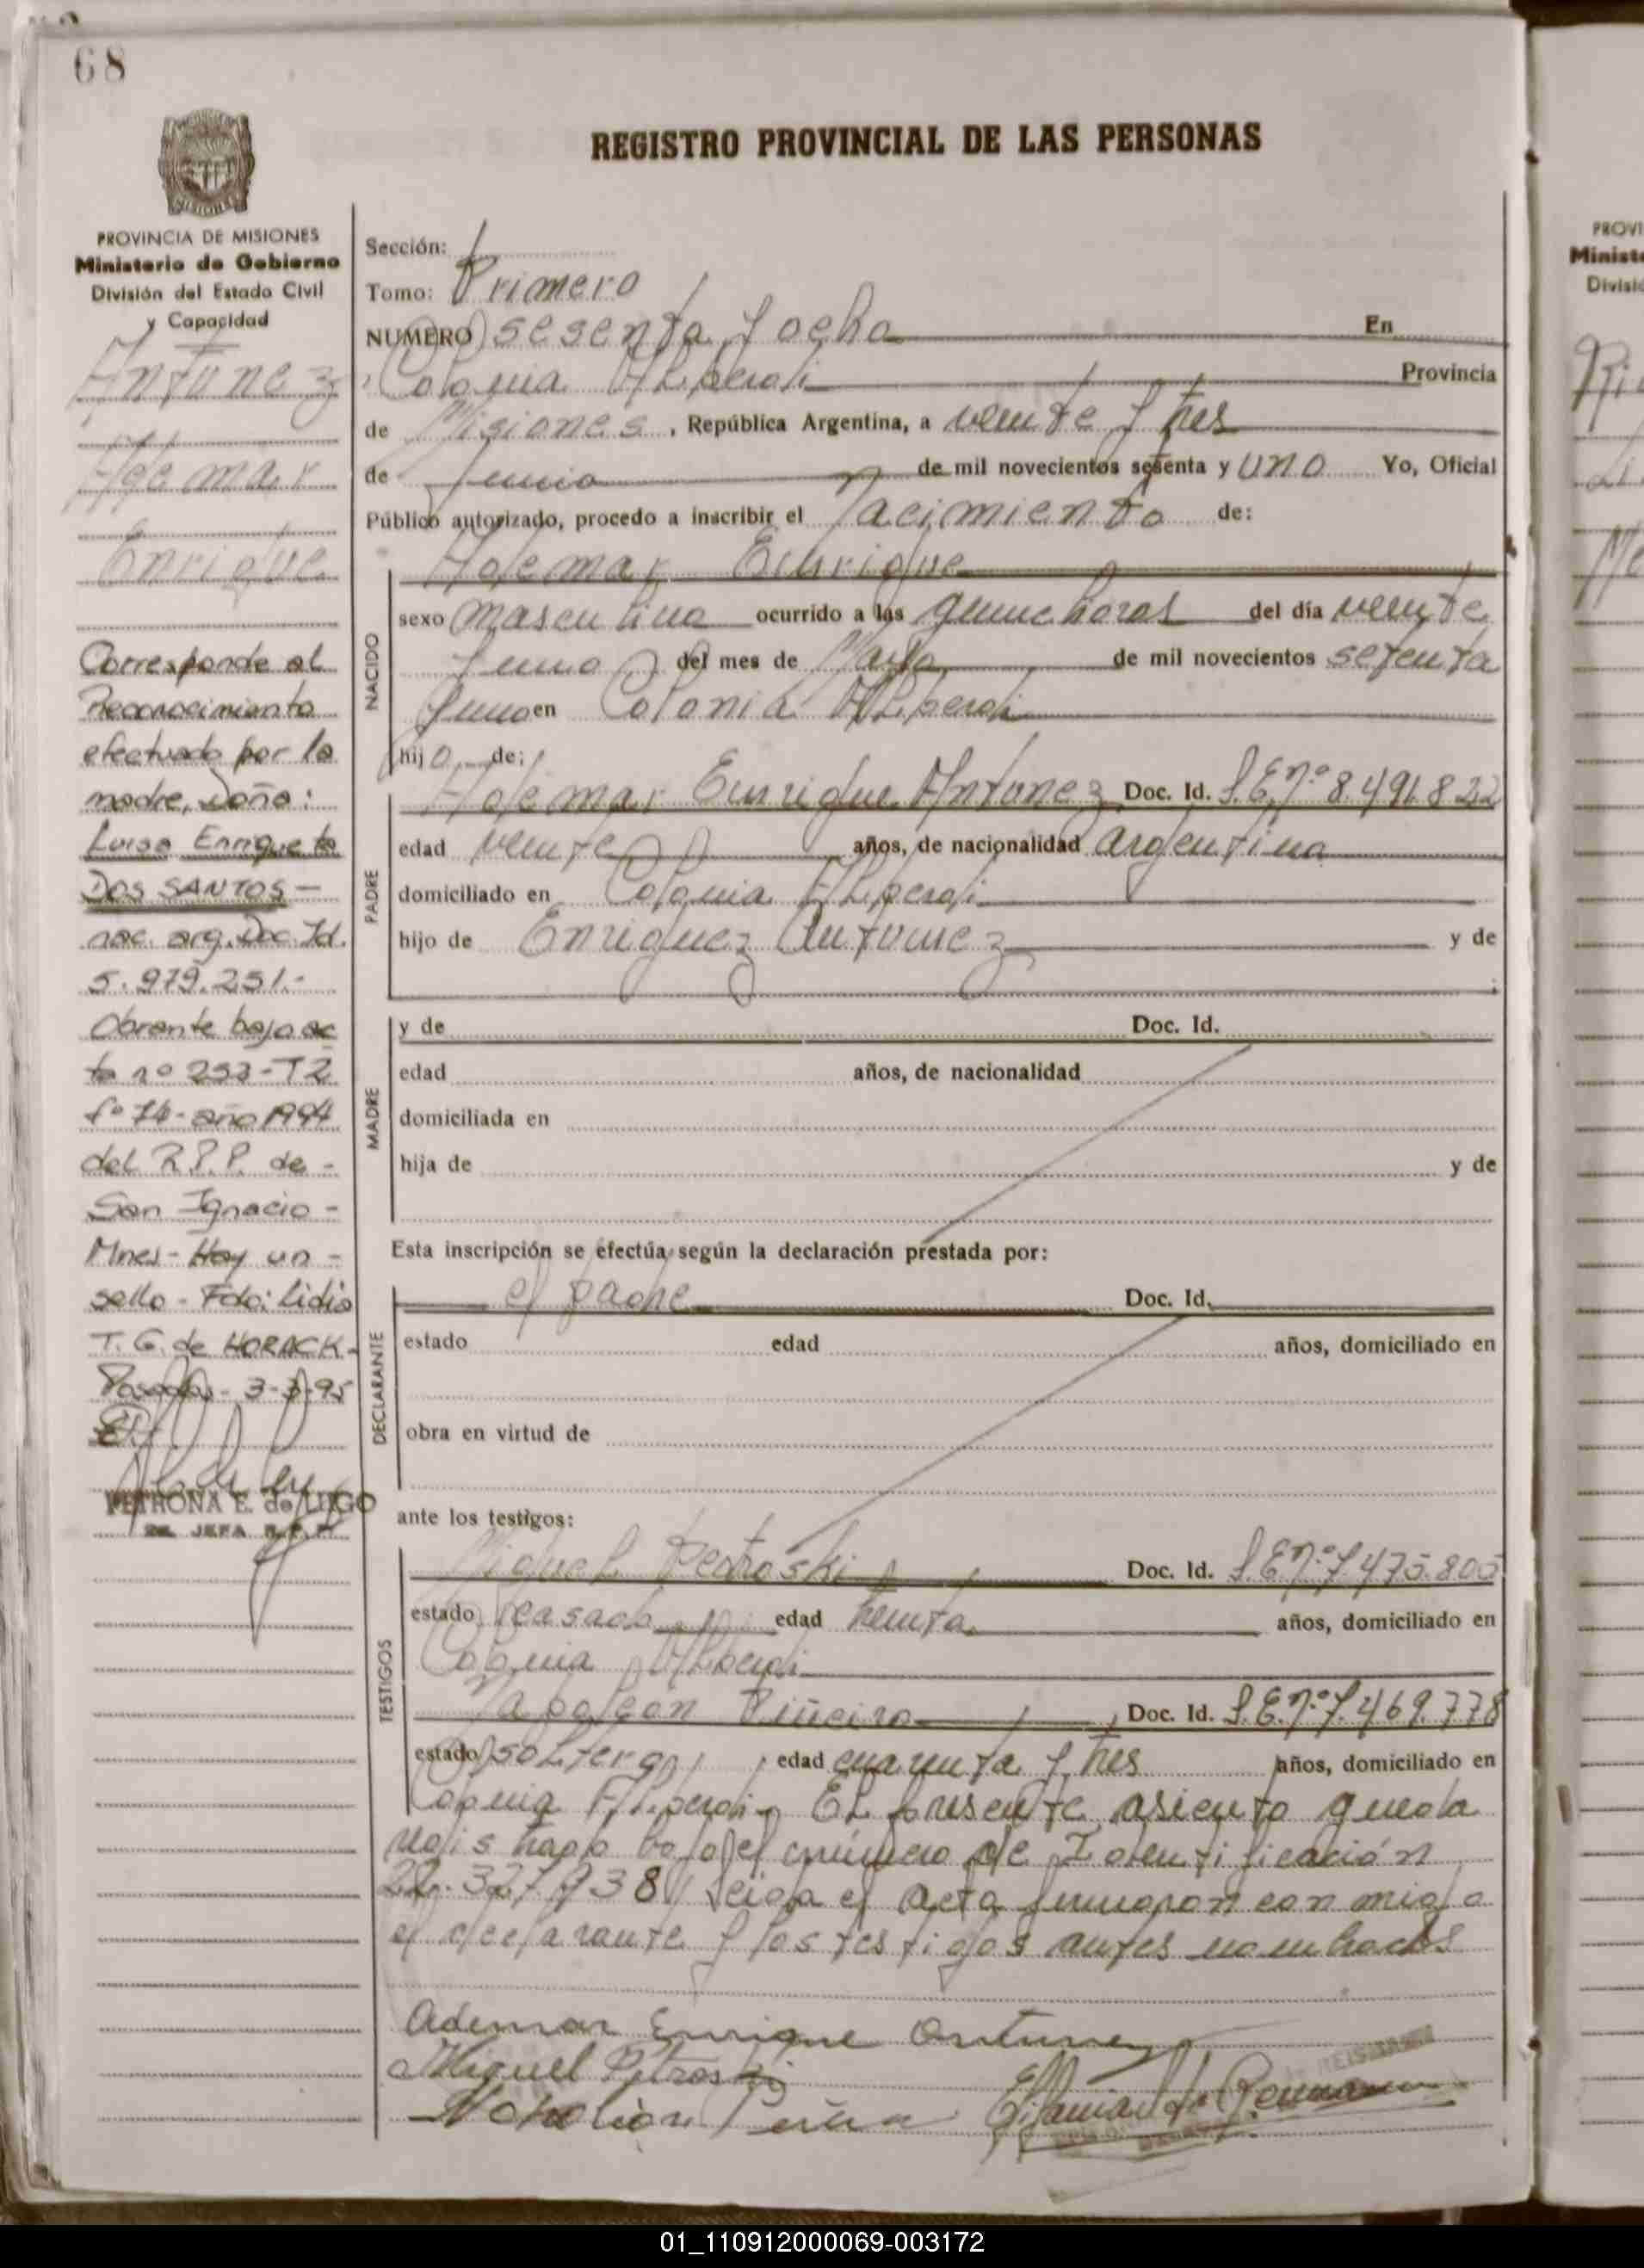 68
REGISTRO PROVINCIAL DE LAS PERSONAS
MISIONES
PROVINCIA DE MISIONES
Ministerio de Gobierno
División del Estado Civil
y Capacidad
Antunez
Ademar
Enrique
Corresponde al
Reconocimiento
efectuado por la
madre, Doña:
Luisa Enriqueta
DOS SANTOS -
nac. arg. Doc. Id.
5.979.251.-
Obrante bajo ac
ta nº 253-T2
fº 74- año 1994
del R.P.P. de -
San Ignacio -
Mnes- Hay un -
sello - Fdo: Lidia
T. G. de HORACK-
Posadas- 3-3-95
PETRONA E. de LUGO
JEFA R.P.P.
Sección:
Tomo: Primero
NUMERO sesenta y ocho En
Colonia Alberdi Provincia
de Misiones, República Argentina, a veinte y tres
de Junio de mil novecientos setenta y uno Yo, Oficial
Público autorizado, procedo a inscribir el Nacimiento de:
Ademar Enrique
NACIDO
sexo masculino ocurrido a las quince horas del día veinte
y uno del mes de Mayo de mil novecientos setenta
y uno en Colonia Alberdi
hijo de:
PADRE
Ademar Enrique Antunez Doc. Id. L.E.nº 8.491.822
edad veinte años, de nacionalidad argentina
domiciliado en Colonia Alberdi
hijo de Enriquez Antunez y de
MADRE
y de Doc. Id.
edad años, de nacionalidad
domiciliada en
hija de y de
Esta inscripción se efectúa según la declaración prestada por:
DECLARANTE
el padre Doc. Id.
estado edad años, domiciliado en
obra en virtud de
ante los testigos:
TESTIGOS
Miguel Pedroski Doc. Id. L.E.nº 7.475.805
estado casado edad treinta años, domiciliado en
Colonia Alberdi
Napoleon Piñeiro Doc. Id. L.E.nº 7.469.778
estado soltero edad cuarenta y tres años, domiciliado en
Colonia Alberdi. El presente asiento queda
registrado bajo el número de Identificación
22.327.938 Leida el acta firmaron conmigo
el declarante y los testigos antes nombrados
Ademar Enrique Antunez
Miguel Petroski
Napoleon
01_110912000069-003172